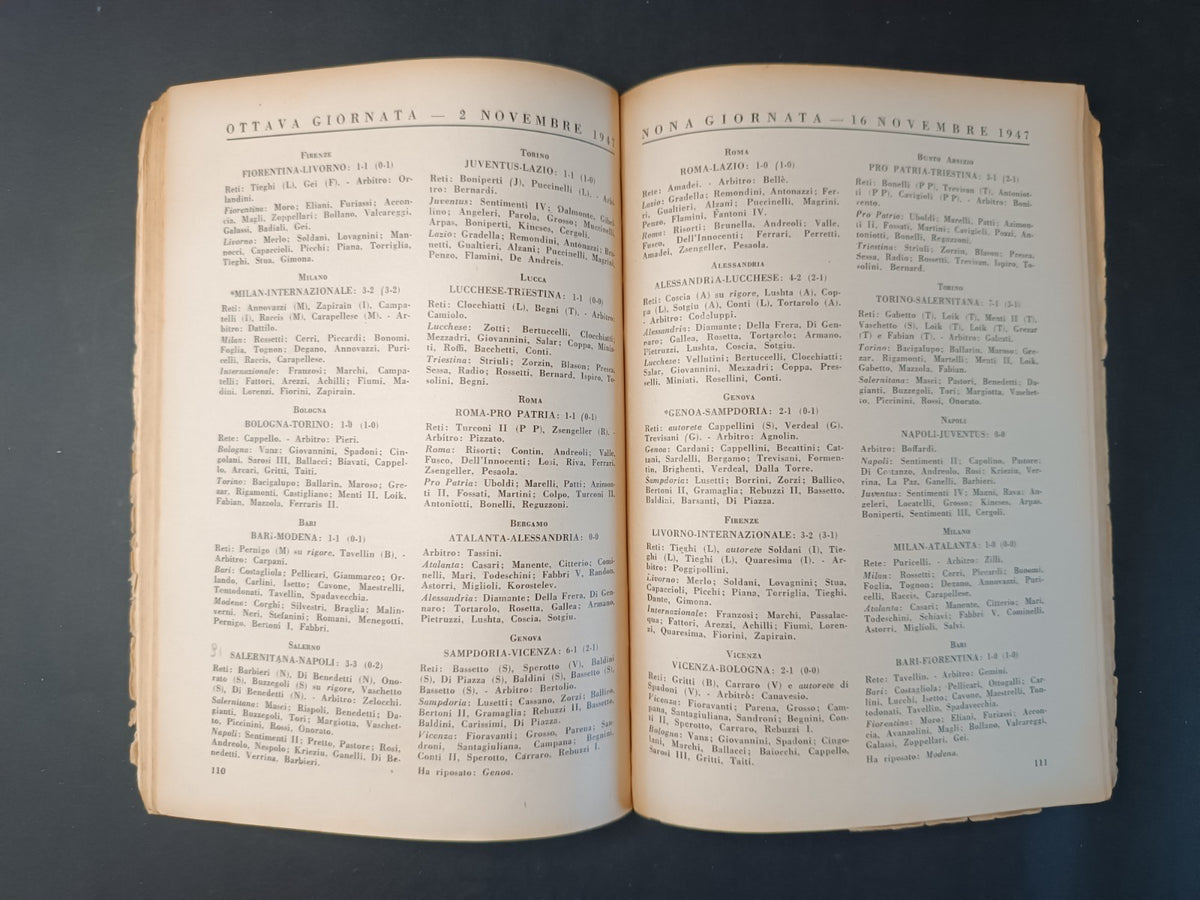 OTTAVA GIORNATA — 2 NOVEMBRE 1947
Firenze
FIORENTINA-LIVORNO: 1-1 (0-1)
Reti: Tieghi (L), Gei (F). - Arbitro: Or-
landini.
Fiorentina: Moro; Eliani, Furiassi; Accon-
cia, Magli, Zoppellari; Bollano, Valcareggi,
Galassi, Badiali, Gei.
Livorno: Merlo; Soldani, Lovagnini; Man-
nocci, Capaccioli, Picchi; Piana, Torriglia,
Tieghi, Stua, Gimona.
Milano
*MILAN-INTERNAZIONALE: 3-2 (3-2)
Reti: Annovazzi (M), Zapirain (I), Campa-
telli (I), Raccis (M), Carapellese (M). - Ar-
bitro: Dattilo.
Milan: Rossetti; Cerri, Piccardi; Bonomi,
Foglia, Tognon; Degano, Annovazzi, Puri-
celli, Raccis, Carapellese.
Internazionale: Franzosi; Marchi, Campa-
telli; Fattori, Arezzi, Achilli; Fiumi, Ma-
dini, Lorenzi, Fiorini, Zapirain.
Bologna
BOLOGNA-TORINO: 1-0 (1-0)
Rete: Cappello. - Arbitro: Pieri.
Bologna: Vanz; Giovannini, Spadoni; Cin-
golani, Sarosi III, Ballacci; Biavati, Cappel-
lo, Arcari, Gritti, Taiti.
Torino: Bacigalupo; Ballarin, Maroso; Gre-
zar, Rigamonti, Castigliano; Menti II, Loik,
Fabian, Mazzola, Ferraris II.
Bari
BARI-MODENA: 1-1 (0-1)
Reti: Pernigo (M) su rigore, Tavellin (B). -
Arbitro: Carpani.
Bari: Costagliola; Pellicari, Giammarco; Or-
lando, Carlini, Isetto; Cavone, Maestrelli,
Tontodonati, Tavellin, Spadavecchia.
Modena: Corghi; Silvestri, Braglia; Malin-
verni, Neri, Stefanini; Romani, Menegotti,
Pernigo, Bertoni I, Fabbri.
Salerno
SALERNITANA-NAPOLI: 3-3 (0-2)
Reti: Barbieri (N), Di Benedetti (N), Ono-
rato (S), Buzzegoli (S) su rigore, Vaschetto
(S), Di Benedetti (N). - Arbitro: Zelocchi.
Salernitana: Masci; Rispoli, Benedetti; Da-
gianti, Buzzegoli, Tori; Margiotta, Vaschet-
to, Piccinini, Rossi, Onorato.
Napoli: Sentimenti II; Pretto, Pastore; Rosi,
Andreolo, Nespolo; Krieziu, Ganelli, Di Be-
nedetti, Verrina, Barbieri.
110
Torino
JUVENTUS-LAZIO: 1-1 (1-0)
Reti: Boniperti (J), Puccinelli (L). - Arbi-
tro: Bernardi.
Juventus: Sentimenti IV; Dalmonte,
lino; Angeleri, Parola, Grosso; Muccinelli,
Arpas, Boniperti, Kincses, Cergoli.
Lazio: Gradella; Remondini, Antonazzi;
Gualtieri, Alzani; Puccinelli, Magrini,
Penzo, Flamini, De Andreis.
Lucca
LUCCHESE-TRIESTINA: 1-1 (0-0)
Reti: Clocchiatti (L), Begni (T). - Arbitro:
Camiolo.
Lucchese: Zotti; Bertuccelli, Clocchiatti;
Mezzadri, Giovannini, Salar; Coppa, Minia-
ti, Roffi, Bacchetti, Conti.
Triestina: Striuli; Zorzin, Blason; Presca,
Sessa, Radio; Rossetti, Bernard, Ispiro, To-
solini, Begni.
Roma
ROMA-PRO PATRIA: 1-1 (0-1)
Reti: Turconi II (P P), Zsengeller (R). -
Arbitro: Pizzato.
Roma: Risorti; Contin, Andreoli; Valle,
Fusco, Dell'Innocenti; Losi, Riva, Ferrari,
Zsengeller, Pesaola.
Pro Patria: Uboldi; Marelli, Patti; Azimon-
ti II, Fossati, Martini; Colpo, Turconi II,
Antoniotti, Bonelli, Reguzzoni.
Bergamo
ATALANTA-ALESSANDRIA: 0-0
Arbitro: Tassini.
Atalanta: Casari; Manente, Citterio; Comi-
nelli, Mari, Todeschini; Fabbri V, Randon,
Astorri, Miglioli, Korostelev.
Alessandria: Diamante; Della Frera, Di Gen-
naro; Tortarolo, Rosetta, Gallea; Armano,
Pietruzzi, Lushta, Coscia, Sotgiu.
Genova
SAMPDORIA-VICENZA: 6-1 (2-1)
Reti: Bassetto (S), Sperotto (V), Baldini
(S), Di Piazza (S), Baldini (S), Bassetto (S),
Bassetto (S). - Arbitro: Bertolio.
Sampdoria: Lusetti; Cassano, Zorzi; Ballico,
Bertoni II, Gramaglia; Rebuzzi II, Bassetto,
Baldini, Carissimi, Di Piazza.
Vicenza: Fioravanti; Grosso, Parena; San-
droni, Santagiuliana, Campana; Begnini,
Conti II, Sperotto, Carraro, Rebuzzi I.
Ha riposato: Genoa.
NONA GIORNATA — 16 NOVEMBRE 1947
Roma
ROMA-LAZIO: 1-0 (1-0)
Rete: Amadei. - Arbitro: Bellè.
Lazio: Gradella; Remondini, Antonazzi; Fer-
ri, Gualtieri, Alzani; Puccinelli, Magrini,
Penzo, Flamini, Fantoni IV.
Roma: Risorti; Brunella, Andreoli; Valle,
Fusco, Dell'Innocenti; Ferrari, Perretti,
Amadei, Zsengeller, Pesaola.
Alessandria
ALESSANDRIA-LUCCHESE: 4-2 (2-1)
Reti: Coscia (A) su rigore, Lushta (A), Cop-
pa (L), Sotgiu (A), Conti (L), Tortarolo (A).
- Arbitro: Codeluppi.
Alessandria: Diamante; Della Frera, Di Gen-
naro; Gallea, Rosetta, Tortarolo; Armano,
Pietruzzi, Lushta, Coscia, Sotgiu.
Lucchese: Vellutini; Bertuccelli, Clocchiatti;
Salar, Giovannini, Mezzadri; Coppa, Pres-
selli, Miniati, Rosellini, Conti.
Genova
*GENOA-SAMPDORIA: 2-1 (0-1)
Reti: autorete Cappellini (S), Verdeal (G),
Trevisani (G). - Arbitro: Agnolin.
Genoa: Cardani; Cappellini, Becattini; Cat-
tani, Sardelli, Bergamo; Trevisani, Formen-
tin, Brighenti, Verdeal, Dalla Torre.
Sampdoria: Lusetti; Borrini, Zorzi; Ballico,
Bertoni II, Gramaglia; Rebuzzi II, Bassetto,
Baldini, Barsanti, Di Piazza.
Firenze
LIVORNO-INTERNAZIONALE: 3-2 (3-1)
Reti: Tieghi (L), autorete Soldani (I), Tie-
ghi (L), Tieghi (L), Quaresima (I). - Ar-
bitro: Poggipollini.
Livorno: Merlo; Soldani, Lovagnini; Stua,
Capaccioli, Picchi; Piana, Torriglia, Tieghi,
Dante, Gimona.
Internazionale: Franzosi; Marchi, Passalac-
qua; Fattori, Arezzi, Achilli; Fiumi, Loren-
zi, Quaresima, Fiorini, Zapirain.
Vicenza
VICENZA-BOLOGNA: 2-1 (0-0)
Reti: Gritti (B), Carraro (V) e autorete di
Spadoni (V). - Arbitro: Canavesio.
Vicenza: Fioravanti; Parena, Grosso; Cam-
pana, Santagiuliana, Sandroni; Begnini, Con-
ti II, Sperotto, Carraro, Rebuzzi I.
Bologna: Vanz; Giovannini, Spadoni; Cingo-
lani, Marchi, Ballacci; Baiocchi, Cappello,
Sarosi III, Gritti, Taiti.
Busto Arsizio
PRO PATRIA-TRIESTINA: 3-1 (2-1)
Reti: Bonelli (P P), Trevisan (T), Antoniot-
ti (P P), Cavigioli (P P). - Arbitro: Boni-
vento.
Pro Patria: Uboldi; Marelli, Patti; Azimon-
ti II, Fossati, Martini; Cavigioli, Pozzi, An-
toniotti, Bonelli, Reguzzoni.
Triestina: Striuli; Zorzin, Blason; Presca,
Sessa, Radio; Rossetti, Trevisan, Ispiro, To-
solini, Bernard.
Torino
TORINO-SALERNITANA: 7-1 (3-1)
Reti: Gabetto (T), Loik (T), Menti II (T),
Vaschetto (S), Loik (T), Loik (T), Grezar
(T) e Fabian (T). - Arbitro: Galeati.
Torino: Bacigalupo; Ballarin, Maroso; Gre-
zar, Rigamonti, Martelli; Menti II, Loik,
Gabetto, Mazzola, Fabian.
Salernitana: Masci; Pastori, Benedetti; Da-
gianti, Buzzegoli, Tori; Margiotta, Vaschet-
to, Piccinini, Rossi, Onorato.
Napoli
NAPOLI-JUVENTUS: 0-0
Arbitro: Boffardi.
Napoli: Sentimenti II; Capolino, Pastore;
Di Costanzo, Andreolo, Rosi; Krieziu, Ver-
rina, La Paz, Ganelli, Barbieri.
Juventus: Sentimenti IV; Magni, Rava; An-
geleri, Locatelli, Grosso; Kincses, Arpas,
Boniperti, Sentimenti III, Cergoli.
Milano
MILAN-ATALANTA: 1-0 (0-0)
Rete: Puricelli. - Arbitro: Zilli.
Milan: Rossetti; Cerri, Piccardi; Bonomi,
Foglia, Tognon; Degano, Annovazzi, Puri-
celli, Raccis, Carapellese.
Atalanta: Casari; Manente, Citterio; Mari,
Todeschini, Schiavi; Fabbri V, Cominelli,
Astorri, Miglioli, Salvi.
Bari
BARI-FIORENTINA: 1-0 (1-0)
Rete: Tavellin. - Arbitro: Gemini.
Bari: Costagliola; Pellicari, Ottogalli; Car-
lini, Lucchi, Isetto; Cavone, Maestrelli, Ton-
todonati, Tavellin, Spadavecchia.
Fiorentina: Moro; Eliani, Furiassi; Accon-
cia, Avanzolini, Magli; Bollano, Valcareggi,
Galassi, Zoppellari, Gei.
Ha riposato: Modena.
111